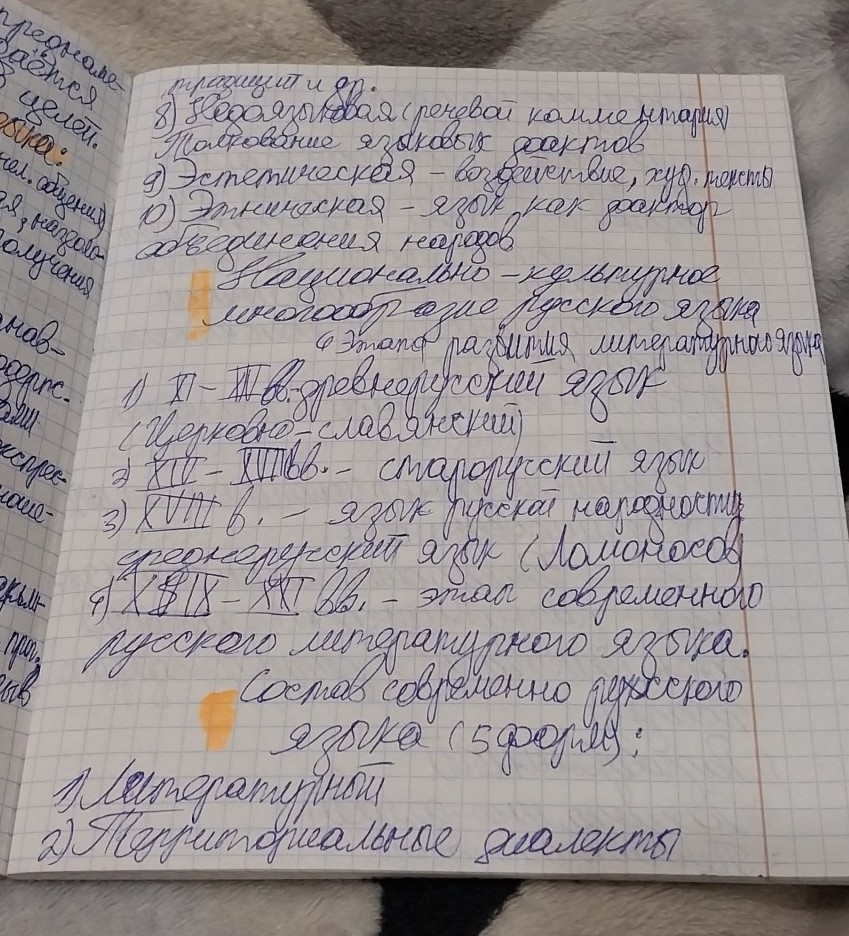 преднаме-
даётся
з целей.
зыка:
нел. общения)
получения
нав-
экспрес-
традиций и др.
8) Недоязыковая (речевой комментария)
Толкование языковых фактов
9) Эстетическая – воздействие, худ. тексты
10) Этническая – язык как фактор
объединения народов
Национально-культурное
многообразие русского языка
4 Этапа развития литературного языка
1) XI – XIV вв. древнерусский язык
(Церковно-славянский)
2) XIV – XVII вв. – старорусский язык
3) XVIII в. – язык русской народности
среднерусский язык (Ломоносов)
4) XIX – XXI вв. – этап современного
русского литературного языка.
Состав современно русского
языка (5 форм):
1) Литературный
2) Территориальные диалекты